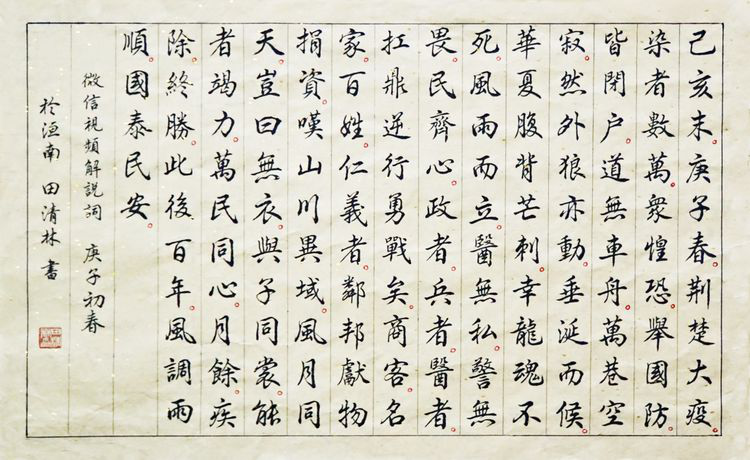 己亥末庚子春荆楚大疫
染者數萬衆惶恐舉國防
皆閉户道無車舟萬巷空
寂然外狼亦動垂涎而候
華夏腹背芒刺幸龍魂不
死風雨而立醫無私警無
畏民齊心政者兵者醫者
扛鼎逆行勇戰矣商客名
家百姓仁義者鄰邦獻物
捐資嘆山川異域風月同
天豈曰無衣與子同裳能
者竭力萬民同心月餘疾
除終勝此後百年風調雨
順國泰民安
微信視頻解説詞 庚子初春
於洹南 田清林書